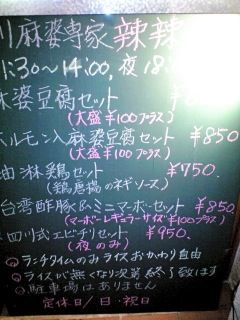 川麻婆専家 辣辣
1:30～14:00, 夜18:
麻婆豆腐セット
(大盛¥100プラス)
ホルモン入麻婆豆腐セット ¥850
(大盛¥100プラス)
油淋鶏セット ¥750.
(鶏唐揚のネギソース)
台湾酢豚&ミニマーボーセット ¥850
(マーボーレギュラーサイズ ¥100プラス)
四川式エビチリセット ¥950.
(夜のみ)
ランチタイムのみライスおかわり自由
ライスが無くなり次第終了致します
駐車場はありません
定休日/日・祝日